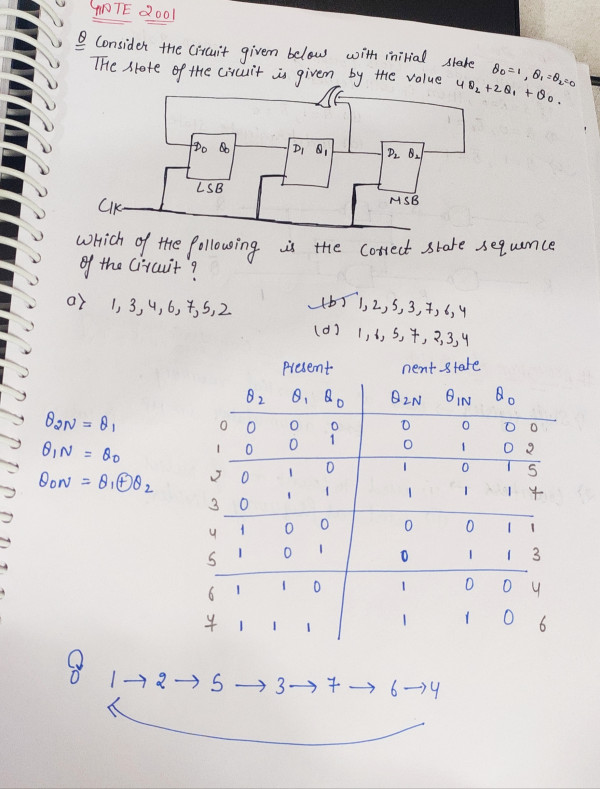 GATE 2001
Q Consider the Circuit given below with initial state Q0=1, Q1=Q2=0
The state of the circuit is given by the value 4Q2+2Q1+Q0.
D0 Q0 D1 Q1 D2 Q2
LSB MSB
Clk
Which of the following is the correct state sequence
of the Circuit?
a) 1, 3, 4, 6, 7, 5, 2 (b) 1, 2, 5, 3, 7, 6, 4
(d) 1, 6, 5, 7, 2, 3, 4
Present next state
Q2 Q1 Q0 Q2N Q1N Q0
Q2N = Q1
Q1N = Q0
Q0N = Q1⊕Q2
0 0 0 0 0 0 0 0
1 0 0 1 0 1 0 2
2 0 1 0 1 0 1 5
3 0 1 1 1 1 1 7
4 1 0 0 0 0 1 1
5 1 0 1 0 1 1 3
6 1 1 0 1 0 0 4
7 1 1 1 1 1 0 6
1 → 2 → 5 → 3 → 7 → 6 → 4